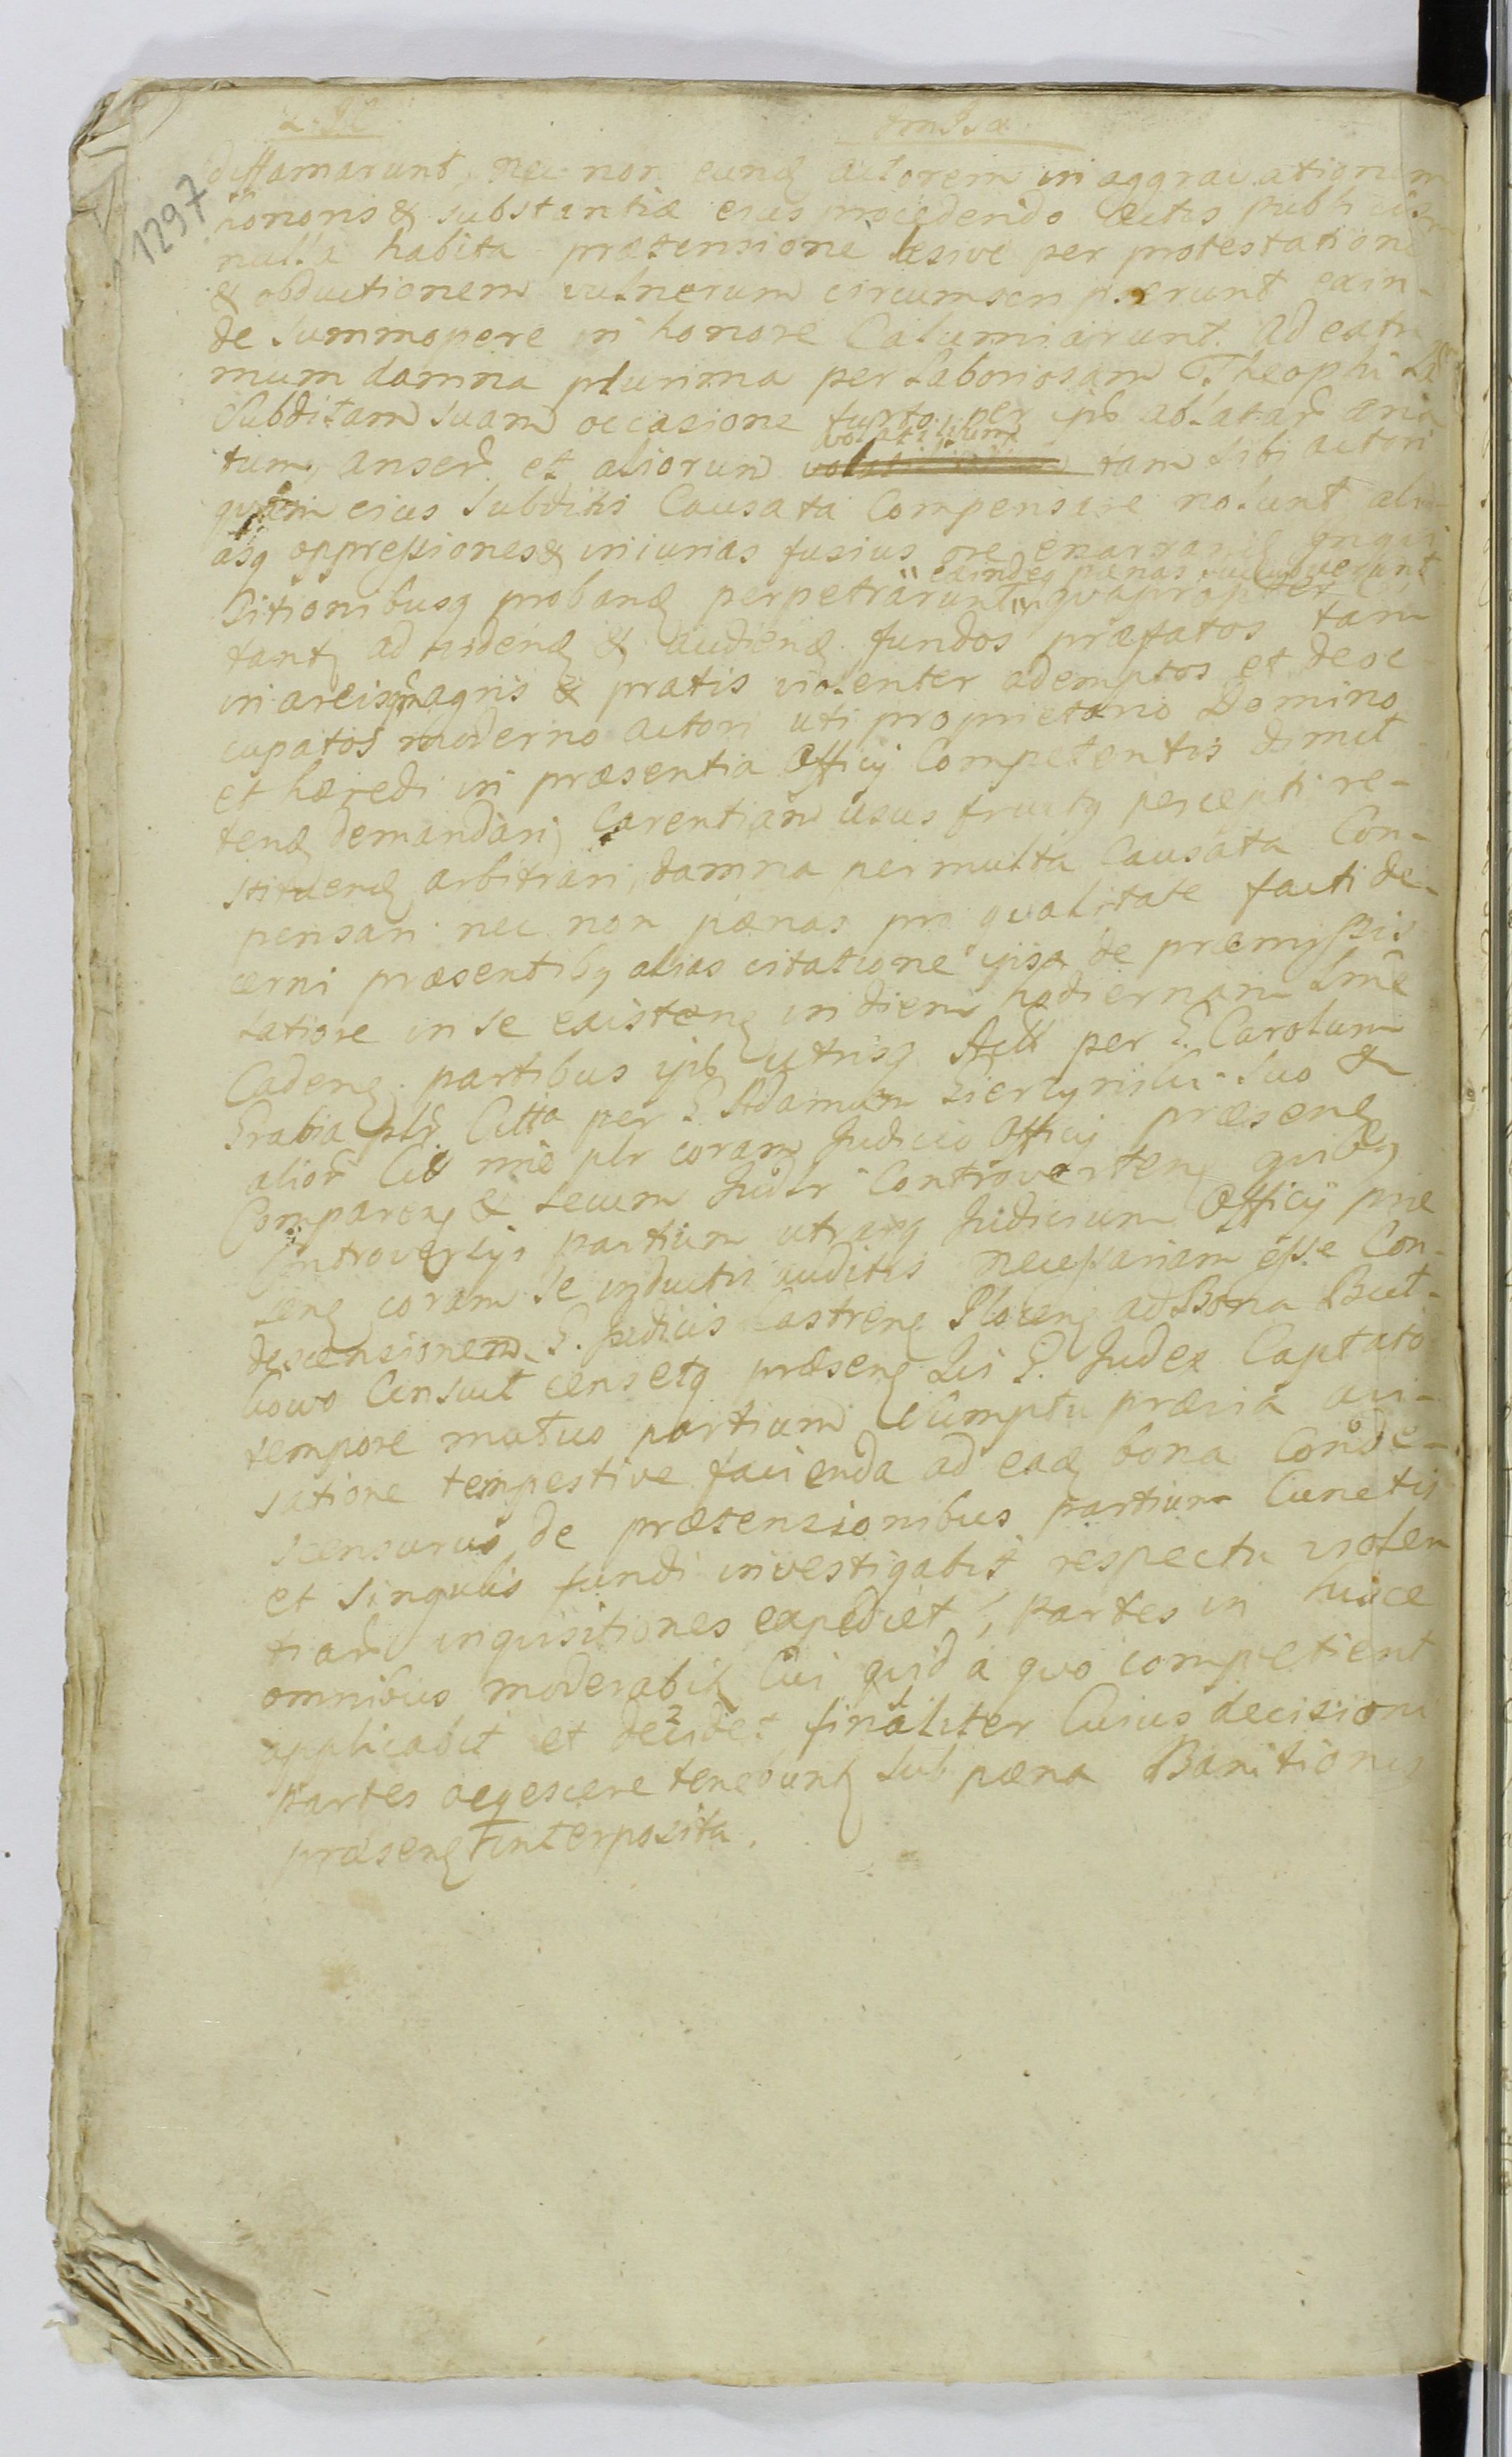 1297
diffamarunt, nec non eund actorem in aggravationem
honoris & substantiæ eius procedendo Actis publicis
nulla habita prætensione læsive per protestatione
& obductionem vulnerum circumscripserunt exin-
de summopere in honore Calumniarunt. Ad extre
mum damna plurima per Laboriosam Theophi
Subditam suam occasione furto per ipsos ablatar
tum, anser et aliorum volatilium tam sibi actori
quam eius Subditis Causata Compensare nolunt ali-
asq oppressiones & iniurias fusius ore enarran
sitionibusq proband perpetrarunt exindeq pænas succubuerunt quapropter Ci
tantq ad vidend & audiend fundos præfatos tam
in areis quam agris & pratis violenter ademptos et deoc-
cupatos moderno actori uti proprietario Domino
et hæredi in præsentia Officij Competentis dimit-
tend demandari, Carentiam usus fructq percepti re-
stituend arbitrari, damna permulta Causata Com-
pensari nec non pænas pro qualitate facti de-
cerni præsentibq alias citatione ipsa de præmissis
latiore in se existen in diem hodiernam
Caden. partibus ipsis utrisq Act per G. Carolum
Grabia plr Citta per G. Adamum suo &
alior Cit noie plr coram Judicio Officij præsen
Comparen & secum Judlr Controverten quibq
Controversijs partium utrarq Judicium Officij præ
sens coram se inductis auditis necessariam esse Con-
descensionem G. Judicis Castren Plocen ad Bona But-
kowo Censuit censetq præsen Qui G. Judex Captato
tempore mutuo partium sumptu prævia avi-
satione tempestive facienda ad ead bona Conde-
scensurus de prætensionibus partium Cunctis
et singulis fundi investigabit respectu violen
tiar inquisitiones expediet, partes in hisce
omnibus moderabit Cui quid a quo competient
applicabit et decidet finaliter Cuius decisioni
partes acqescere tenebunt sub pæna Banitionis
præsen interposita.